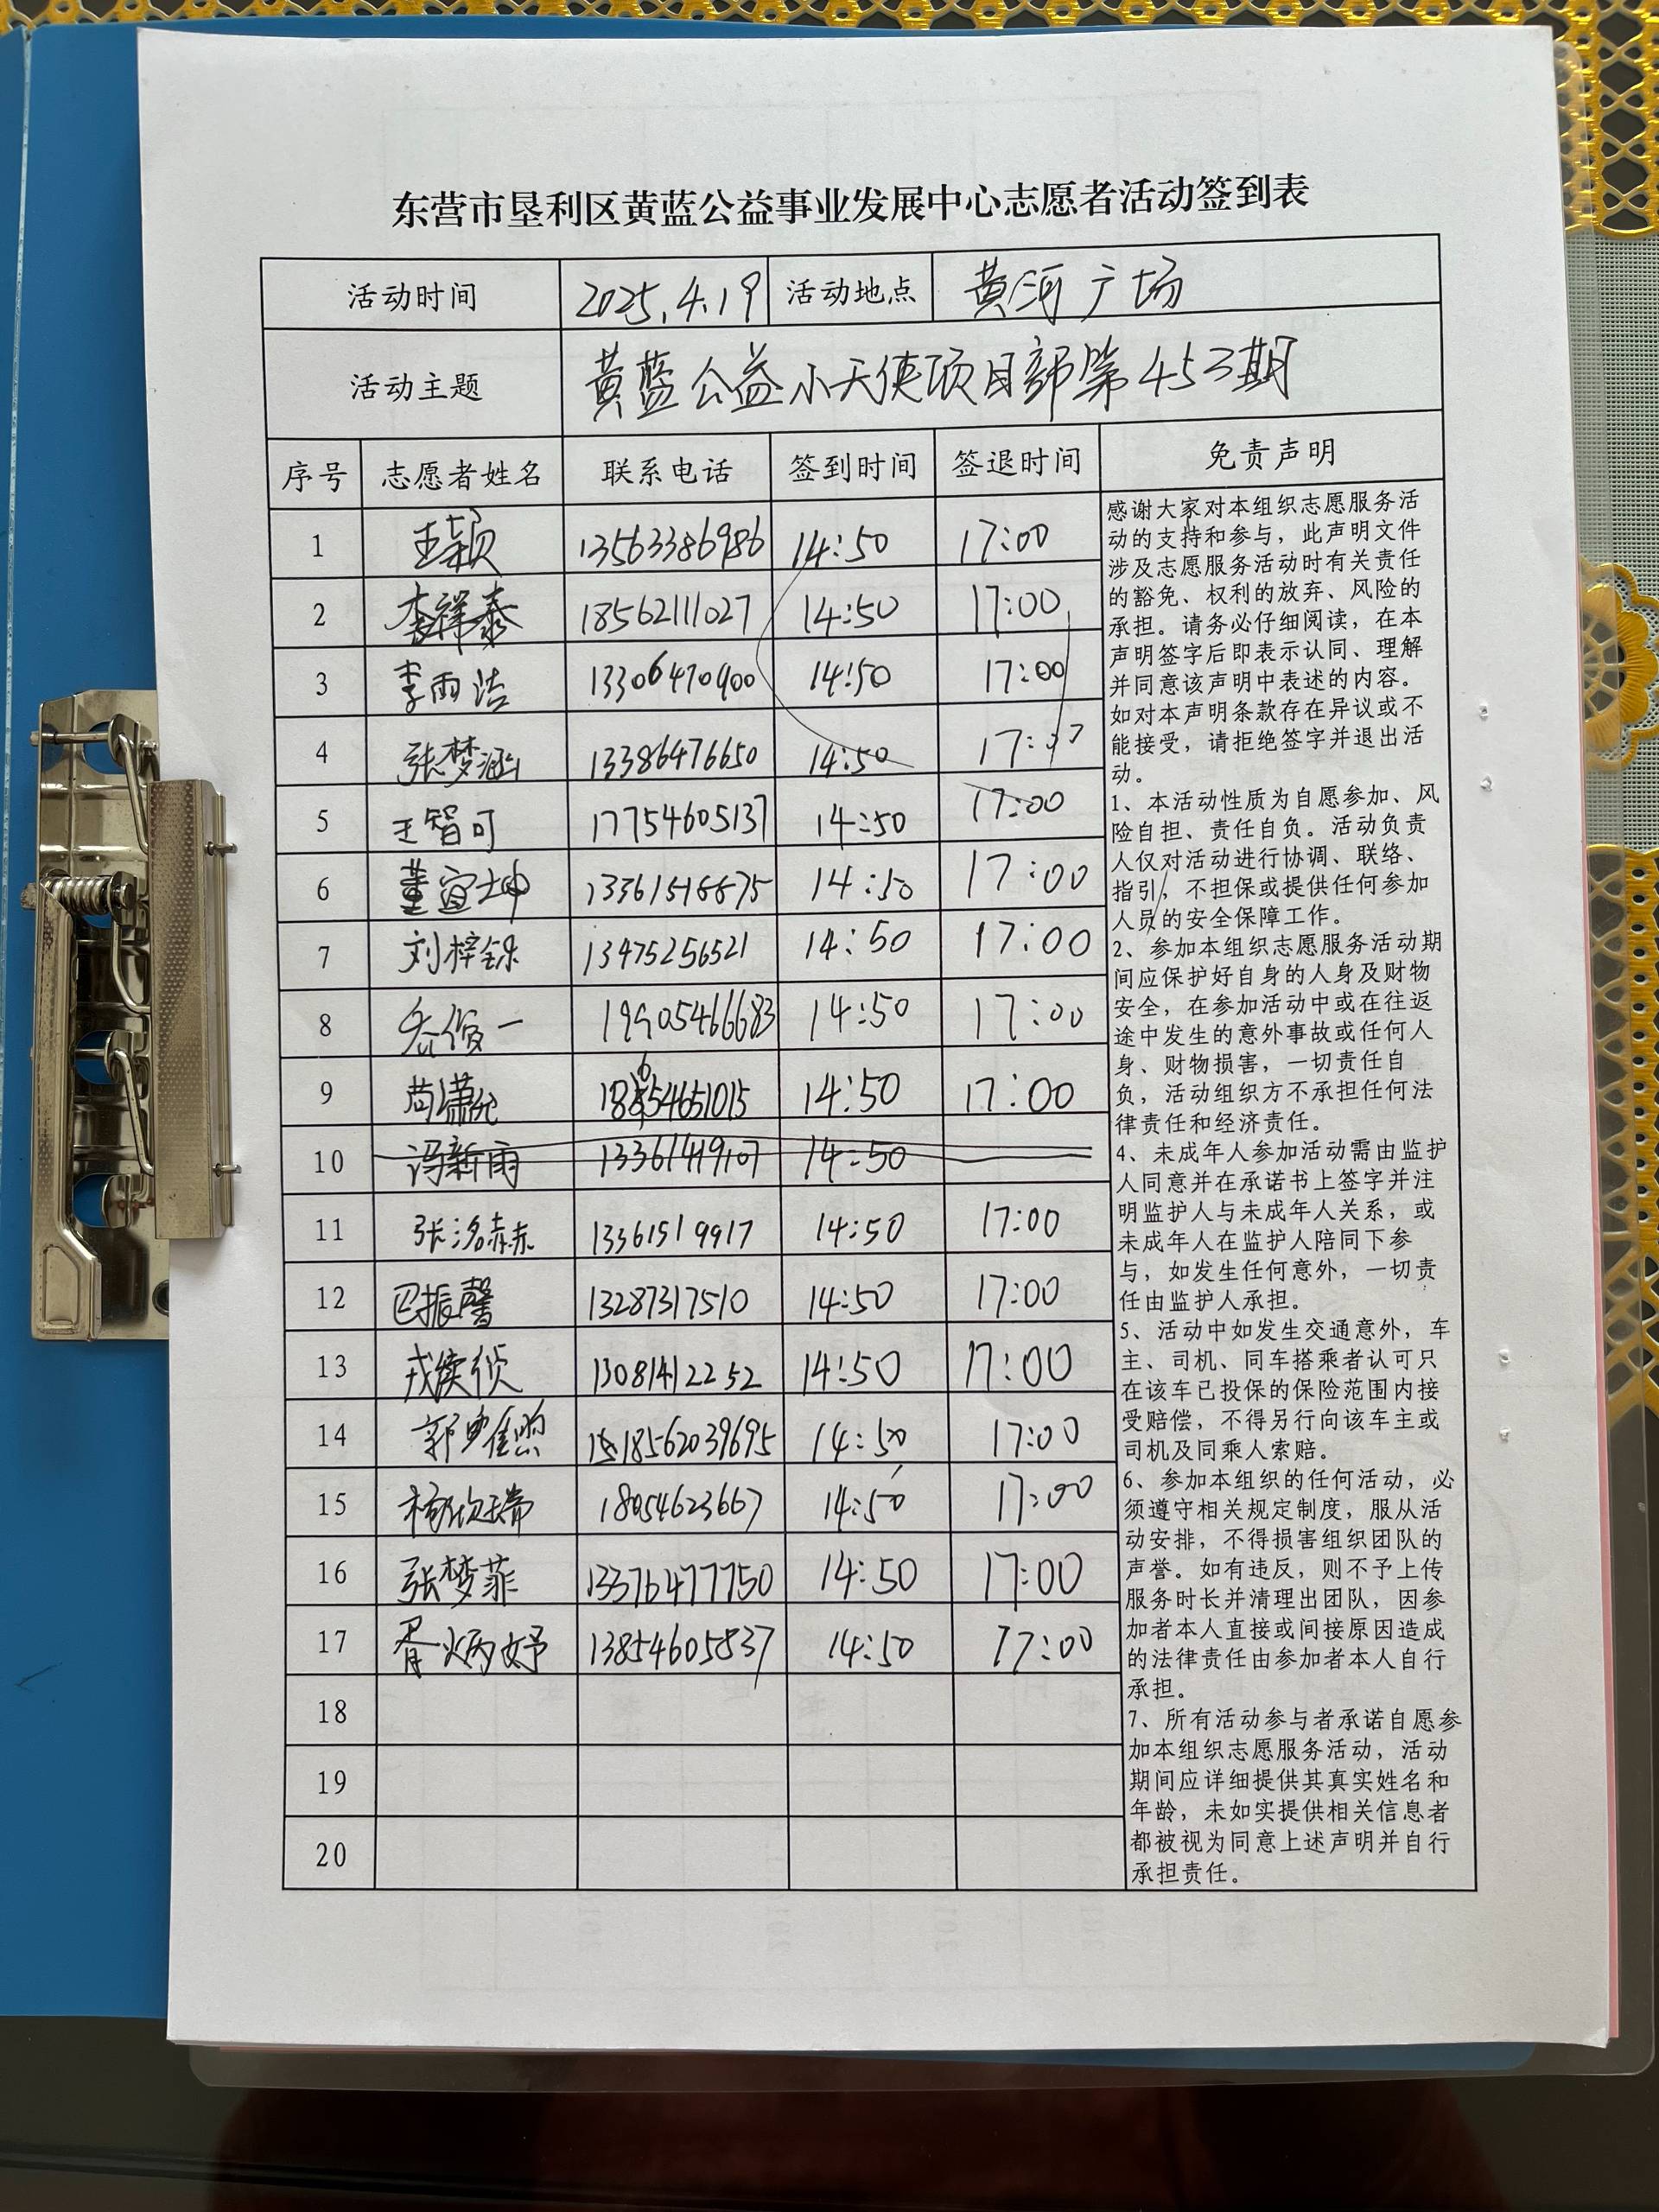 东营市垦利区黄蓝公益事业发展中心志愿者活动签到表
活动时间 2025.4.19 活动地点 黄河广场
活动主题 黄蓝公益小天使项目部第453期
序号 志愿者姓名 联系电话 签到时间 签退时间 免责声明
1 王颖 13563386986 14:50 17:00
2 李祥泰 18562111027 14:50 17:00
3 李雨洁 13306470900 14:50 17:00
4 张梦涵 13386476650 14:50
5 王智可 17754605137 14:50 17:00
6 董宜坤 13361518875 14:50 17:00
7 刘梓铄 13475256521 14:50 17:00
8 19905466683 14:50 17:00
9 14:50 17:00
10 冯新雨 13361419107 14:50
11 张洺赫 13361519917 14:50 17:00
12 巴振馨 13287317510 14:50 17:00
13 13081412252 14:50 17:00
14 18562039695 14:50 17:00
15 杨欣瑞 18054623667 14:50 17:00
16 张梦菲 13376477750 14:50 17:00
17 胥炳妤 13854605837 14:50 17:00
18
19
20
感谢大家对本组织志愿服务活
动的支持和参与，此声明文件
涉及志愿服务活动时有关责任
的豁免、权利的放弃、风险的
承担。请务必仔细阅读，在本
声明签字后即表示认同、理解
并同意该声明中表述的内容。
如对本声明条款存在异议或不
能接受，请拒绝签字并退出活
动。
1、本活动性质为自愿参加、风
险自担、责任自负。活动负责
人仅对活动进行协调、联络、
指引，不担保或提供任何参加
人员的安全保障工作。
2、参加本组织志愿服务活动期
间应保护好自身的人身及财物
安全，在参加活动中或在往返
途中发生的意外事故或任何人
身、财物损害，一切责任自
负，活动组织方不承担任何法
律责任和经济责任。
4、未成年人参加活动需由监护
人同意并在承诺书上签字并注
明监护人与未成年人关系，或
未成年人在监护人陪同下参
与，如发生任何意外，一切责
任由监护人承担。
5、活动中如发生交通意外，车
主、司机、同车搭乘者认可只
在该车已投保的保险范围内接
受赔偿，不得另行向该车主或
司机及同乘人索赔。
6、参加本组织的任何活动，必
须遵守相关规定制度，服从活
动安排，不得损害组织团队的
声誉。如有违反，则不予上传
服务时长并清理出团队，因参
加者本人直接或间接原因造成
的法律责任由参加者本人自行
承担。
7、所有活动参与者承诺自愿参
加本组织志愿服务活动，活动
期间应详细提供其真实姓名和
年龄，未如实提供相关信息者
都被视为同意上述声明并自行
承担责任。